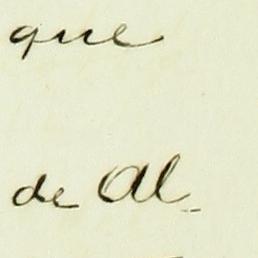 que
de Al-